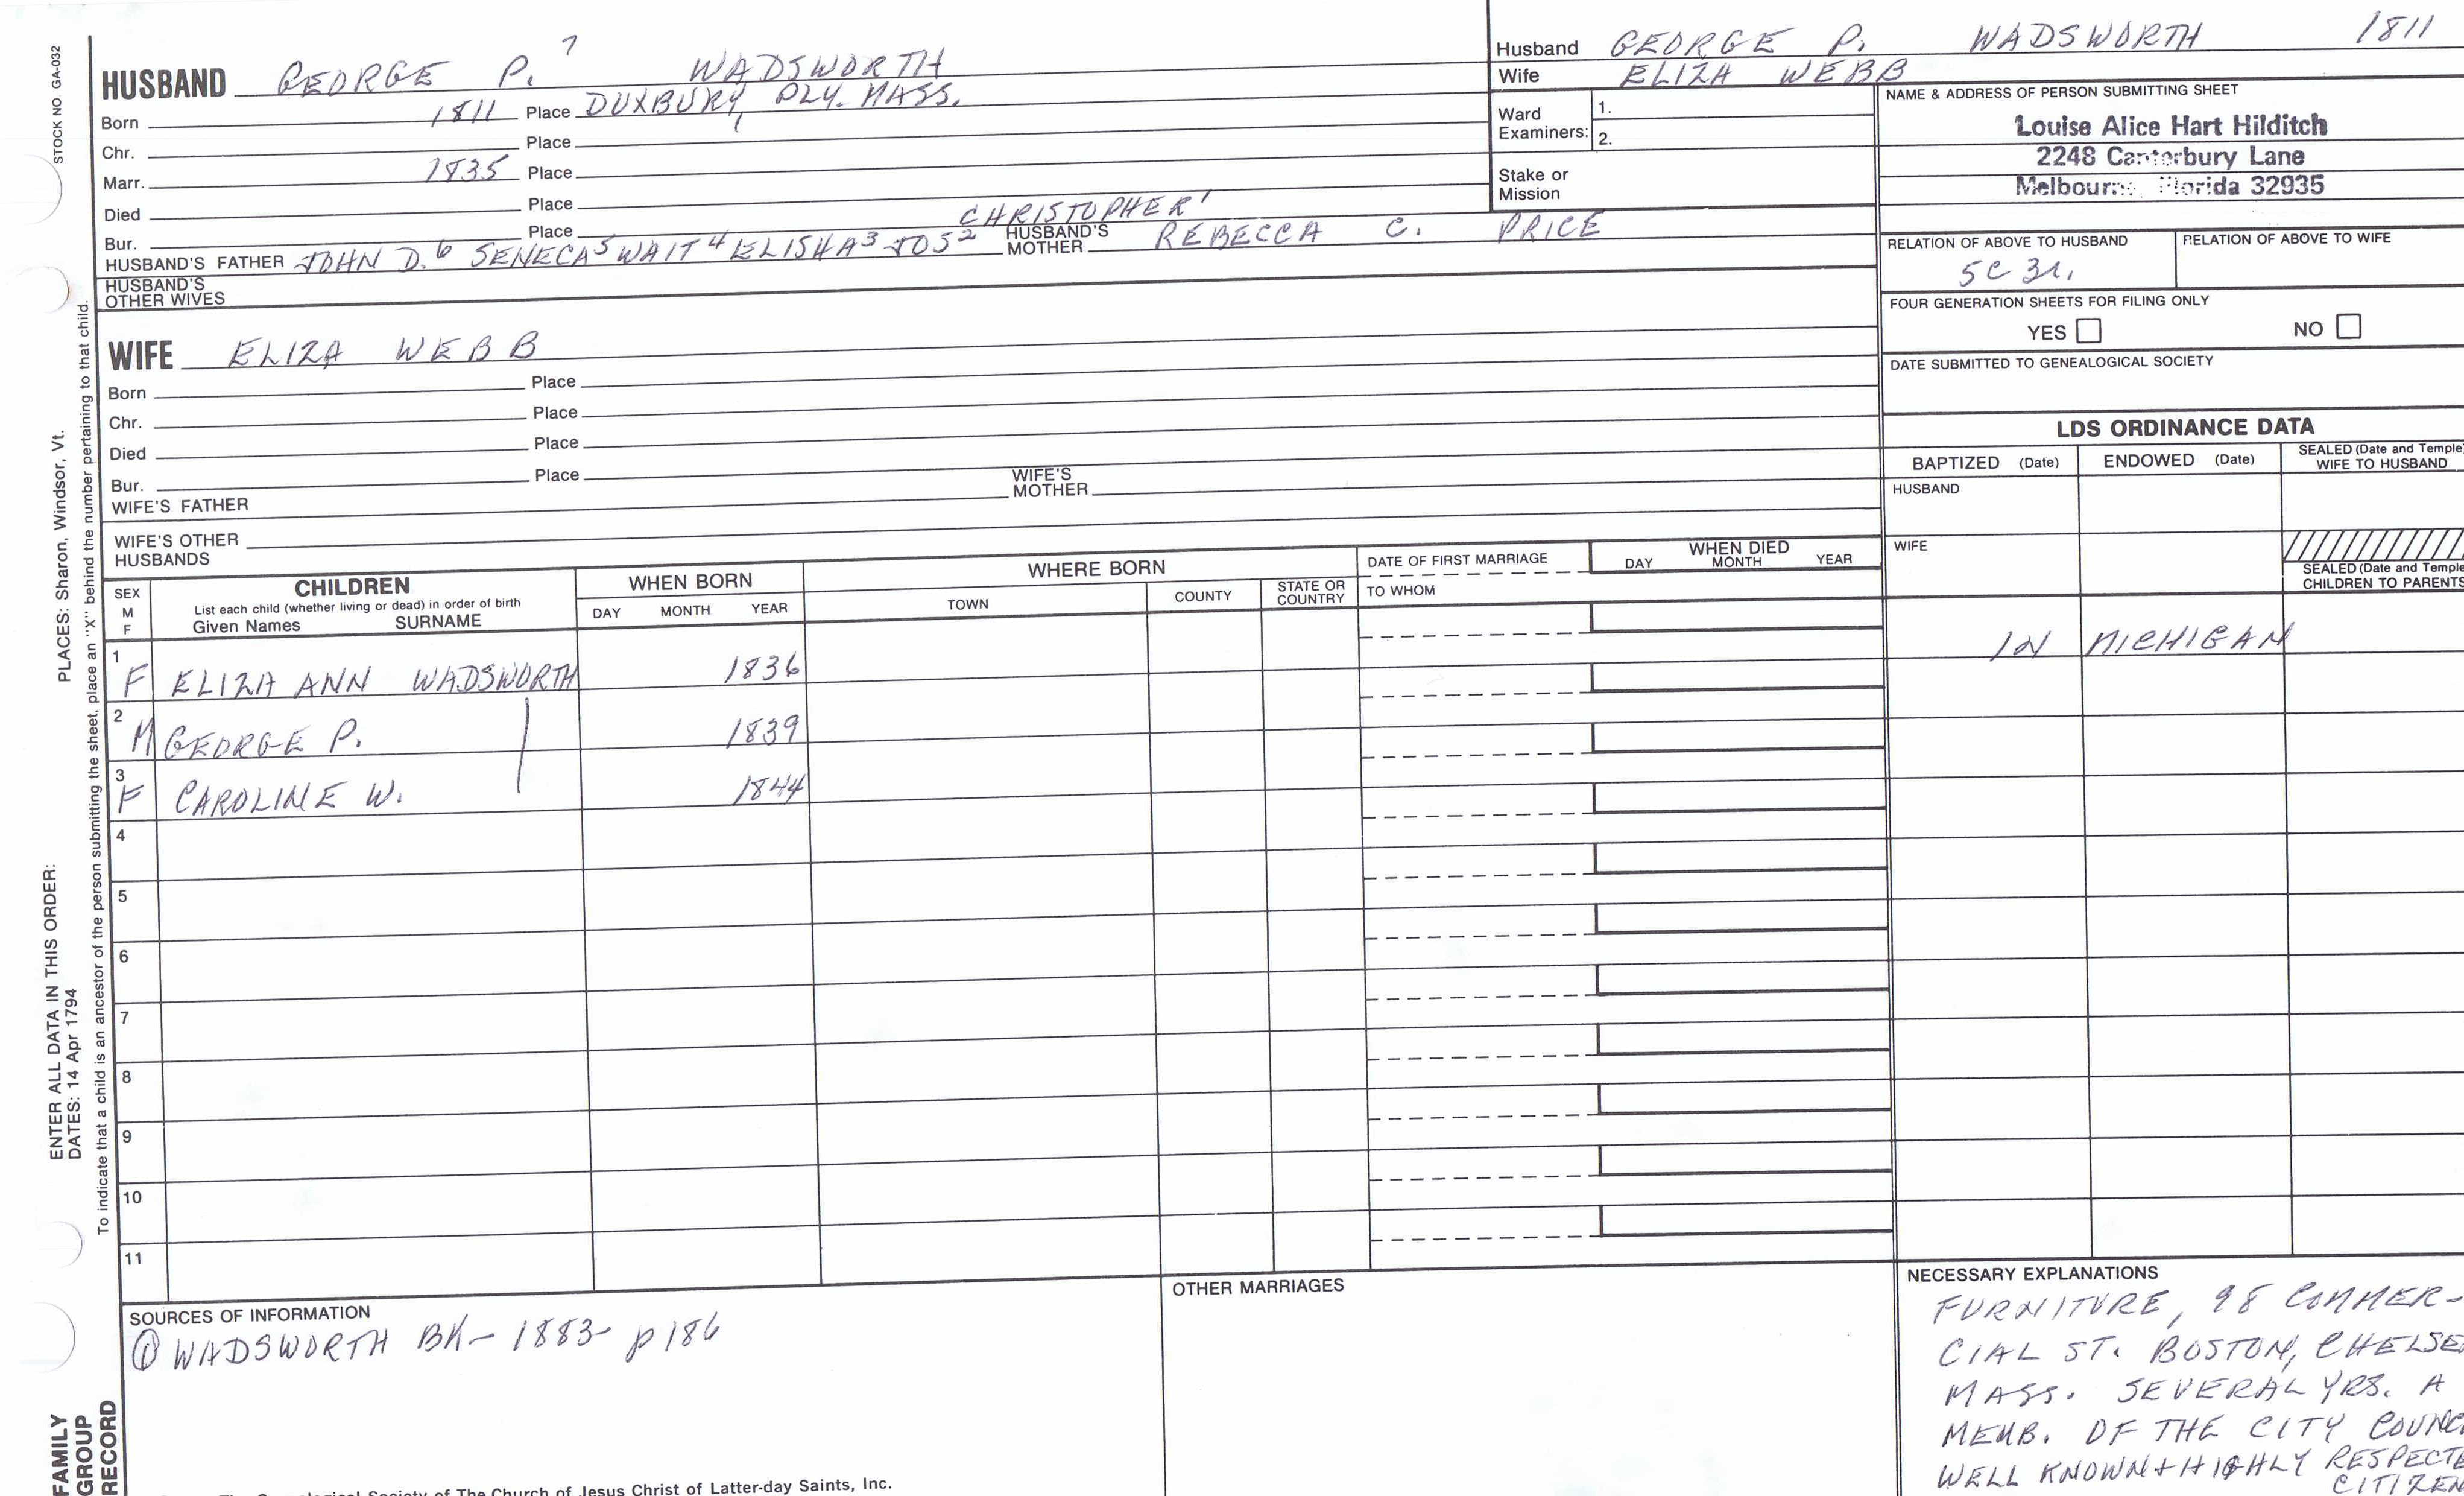 STOCK NO GA-032
PLACES: Sharon, Windsor, Vt.
ENTER ALL DATA IN THIS ORDER:
DATES: 14 Apr 1794
To indicate that a child is an ancestor of the person submitting the sheet, place an "X" behind the number pertaining to that child.
FAMILY
GROUP
RECORD
HUSBAND GEORGE P.7 WADSWORTH
Born 1811 Place DUXBURY, PLY. MASS.
Chr. Place
Marr. 1835 Place
Died Place
Bur. Place CHRISTOPHER1
HUSBAND'S FATHER JOHN D.6 SENECA5 WAIT4 ELISHA3 JOS2 HUSBAND'S MOTHER REBECCA C. PRICE
HUSBAND'S
OTHER WIVES
WIFE ELIZA WEBB
Born Place
Chr. Place
Died Place
Bur. Place
WIFE'S FATHER WIFE'S MOTHER
WIFE'S OTHER
HUSBANDS
Husband GEORGE P. WADSWORTH 1811
Wife ELIZA WEBB
Ward
Examiners: 1.
2.
Stake or
Mission
NAME & ADDRESS OF PERSON SUBMITTING SHEET
Louise Alice Hart Hilditch
2248 Canterbury Lane
Melbourne, Florida 32935
RELATION OF ABOVE TO HUSBAND RELATION OF ABOVE TO WIFE
5C 3r.
FOUR GENERATION SHEETS FOR FILING ONLY
YES NO
DATE SUBMITTED TO GENEALOGICAL SOCIETY
LDS ORDINANCE DATA
BAPTIZED (Date) ENDOWED (Date) SEALED (Date and Temple)
WIFE TO HUSBAND
HUSBAND
WIFE
SEALED (Date and Temple
CHILDREN TO PARENTS
SEX
M
F
CHILDREN
List each child (whether living or dead) in order of birth
Given Names SURNAME
WHEN BORN
DAY MONTH YEAR
WHERE BORN
TOWN COUNTY STATE OR COUNTRY
DATE OF FIRST MARRIAGE
TO WHOM
WHEN DIED
DAY MONTH YEAR
1 F ELIZA ANN WADSWORTH 1836 IN MICHIGAN
2 M GEORGE P. 1839
3 F CAROLINE W. 1844
4
5
6
7
8
9
10
11
SOURCES OF INFORMATION
① WADSWORTH BK- 1883- p 186
OTHER MARRIAGES
NECESSARY EXPLANATIONS
FURNITURE, 98 COMMER-
CIAL ST. BOSTON, CHELSE
MASS. SEVERAL YRS. A
MEMB. OF THE CITY COUNC
WELL KNOWN + HIGHLY RESPECTE
CITIZEN
Society of The Church of Jesus Christ of Latter-day Saints, Inc.